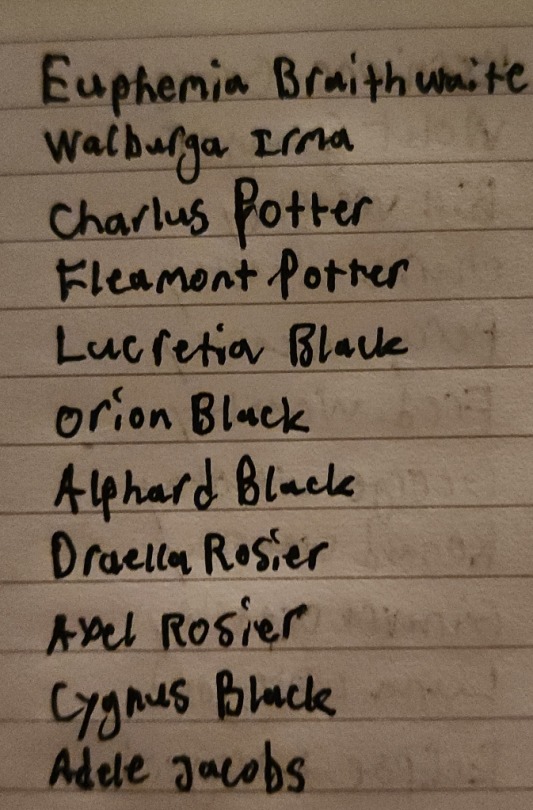 Euphemia Braithwaite
Walburga Irma
Charlus Potter
Fleamont Potter
Lucretia Black
Orion Black
Alphard Black
Druella Rosier
Axel Rosier
Cygnus Black
Adele Jacobs